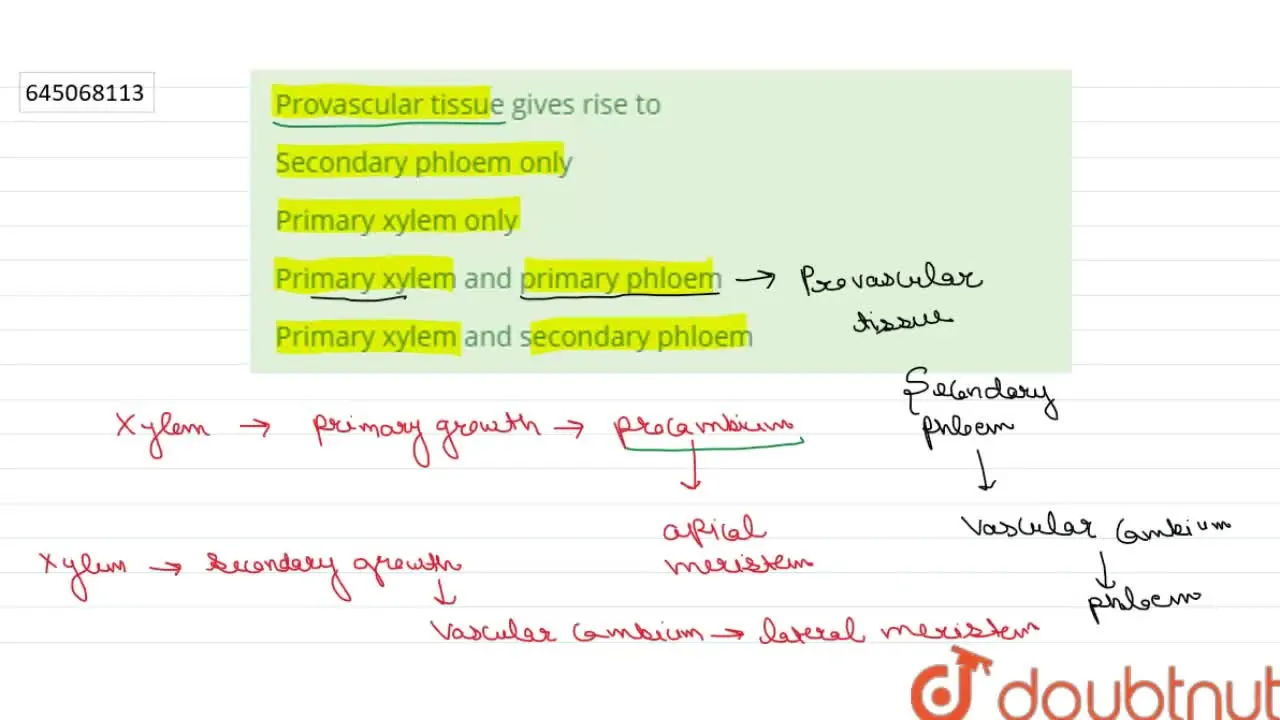 645068113
Provascular tissue gives rise to
Secondary phloem only
Primary xylem only
Primary xylem and primary phloem → Provascular
tissue
Primary xylem and secondary phloem
Secondary
phloem
Xylem → primary growth → procambium
↓
↓
apical
meristem
vascular cambium
↓
phloem
Xylem → secondary growth
↓
vascular cambium → lateral meristem
doubtnut